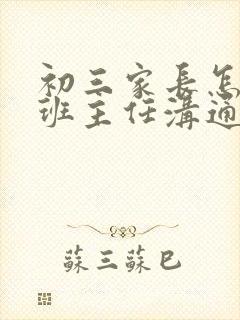 初三家長怎
班主任溝通
蘇三蘇巳